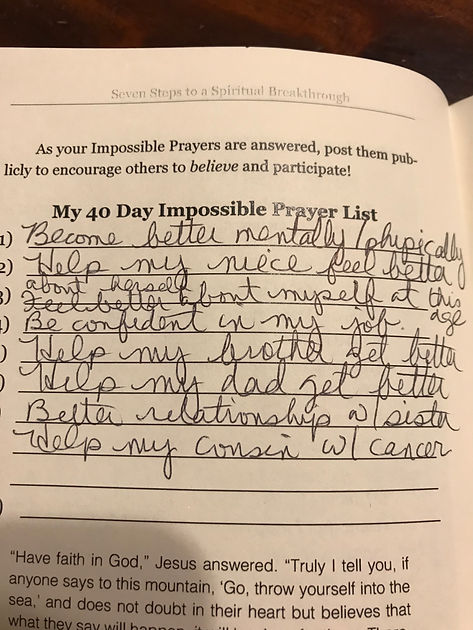 Seven Steps to a Spiritual Breakthrough
As your Impossible Prayers are answered, post them pub-
licly to encourage others to believe and participate!
My 40 Day Impossible Prayer List
1) Become better mentally/physically
2) Help my niece feel better
about herself
3) Feel better about myself at this
age
4) Be confident in my job.
) Help my brother get better
) Help my dad get better
Better relationship w/ sister
Help my cousin w/ cancer
)
"Have faith in God," Jesus answered. "Truly I tell you, if
anyone says to this mountain, 'Go, throw yourself into the
sea,' and does not doubt in their heart but believes that
what they say will happen, it will be